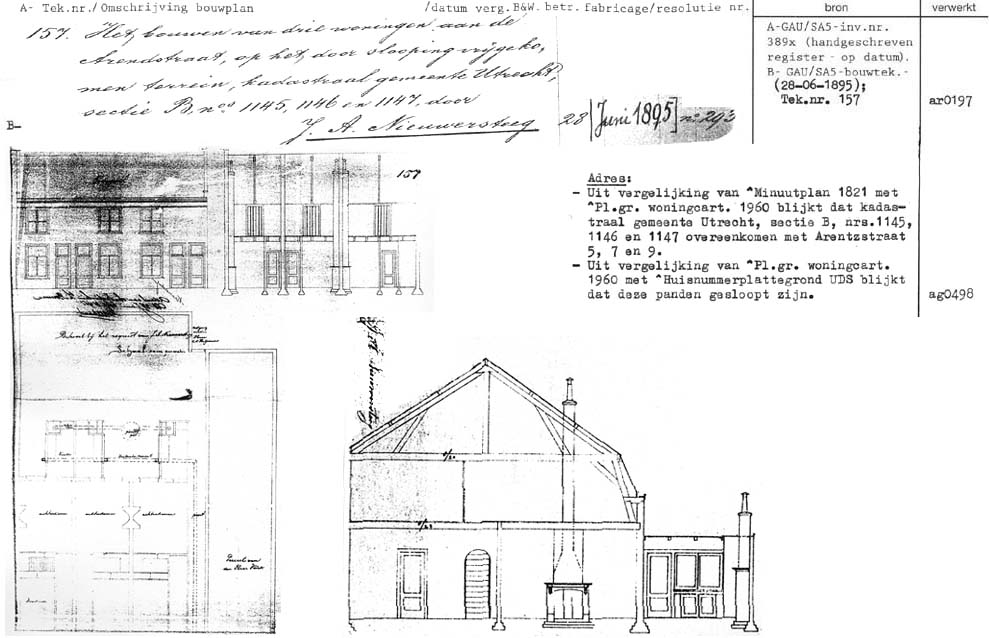 A- Tek.nr./Omschrijving bouwplan /datum verg.B&W. betr. fabricage/resolutie nr. bron verwerkt
157. Het bouwen van drie woningen aan de
Arendstraat, op het, door slooping vrijgeko,
men terrein, kadastraal gemeente Utrecht,
sectie B, nos 1145, 1146 en 1147, door
J. A. Nieuwersteeg 28 [Juni 1895] no 293
A-GAU/SA5-inv.nr.
389x (handgeschreven
register - op datum).
B- GAU/SA5-bouwtek.-
(28-06-1895);
Tek.nr. 157
ar0197
B-
157
Adres:
- Uit vergelijking van ^Minuutplan 1821 met
^Pl.gr. woningcart. 1960 blijkt dat kadas-
traal gemeente Utrecht, sectie B, nrs.1145,
1146 en 1147 overeenkomen met Arentzstraat
5, 7 en 9.
- Uit vergelijking van ^Pl.gr. woningcart.
1960 met ^Huisnummerplattegrond UDS blijkt
dat deze panden gesloopt zijn.
ag0498